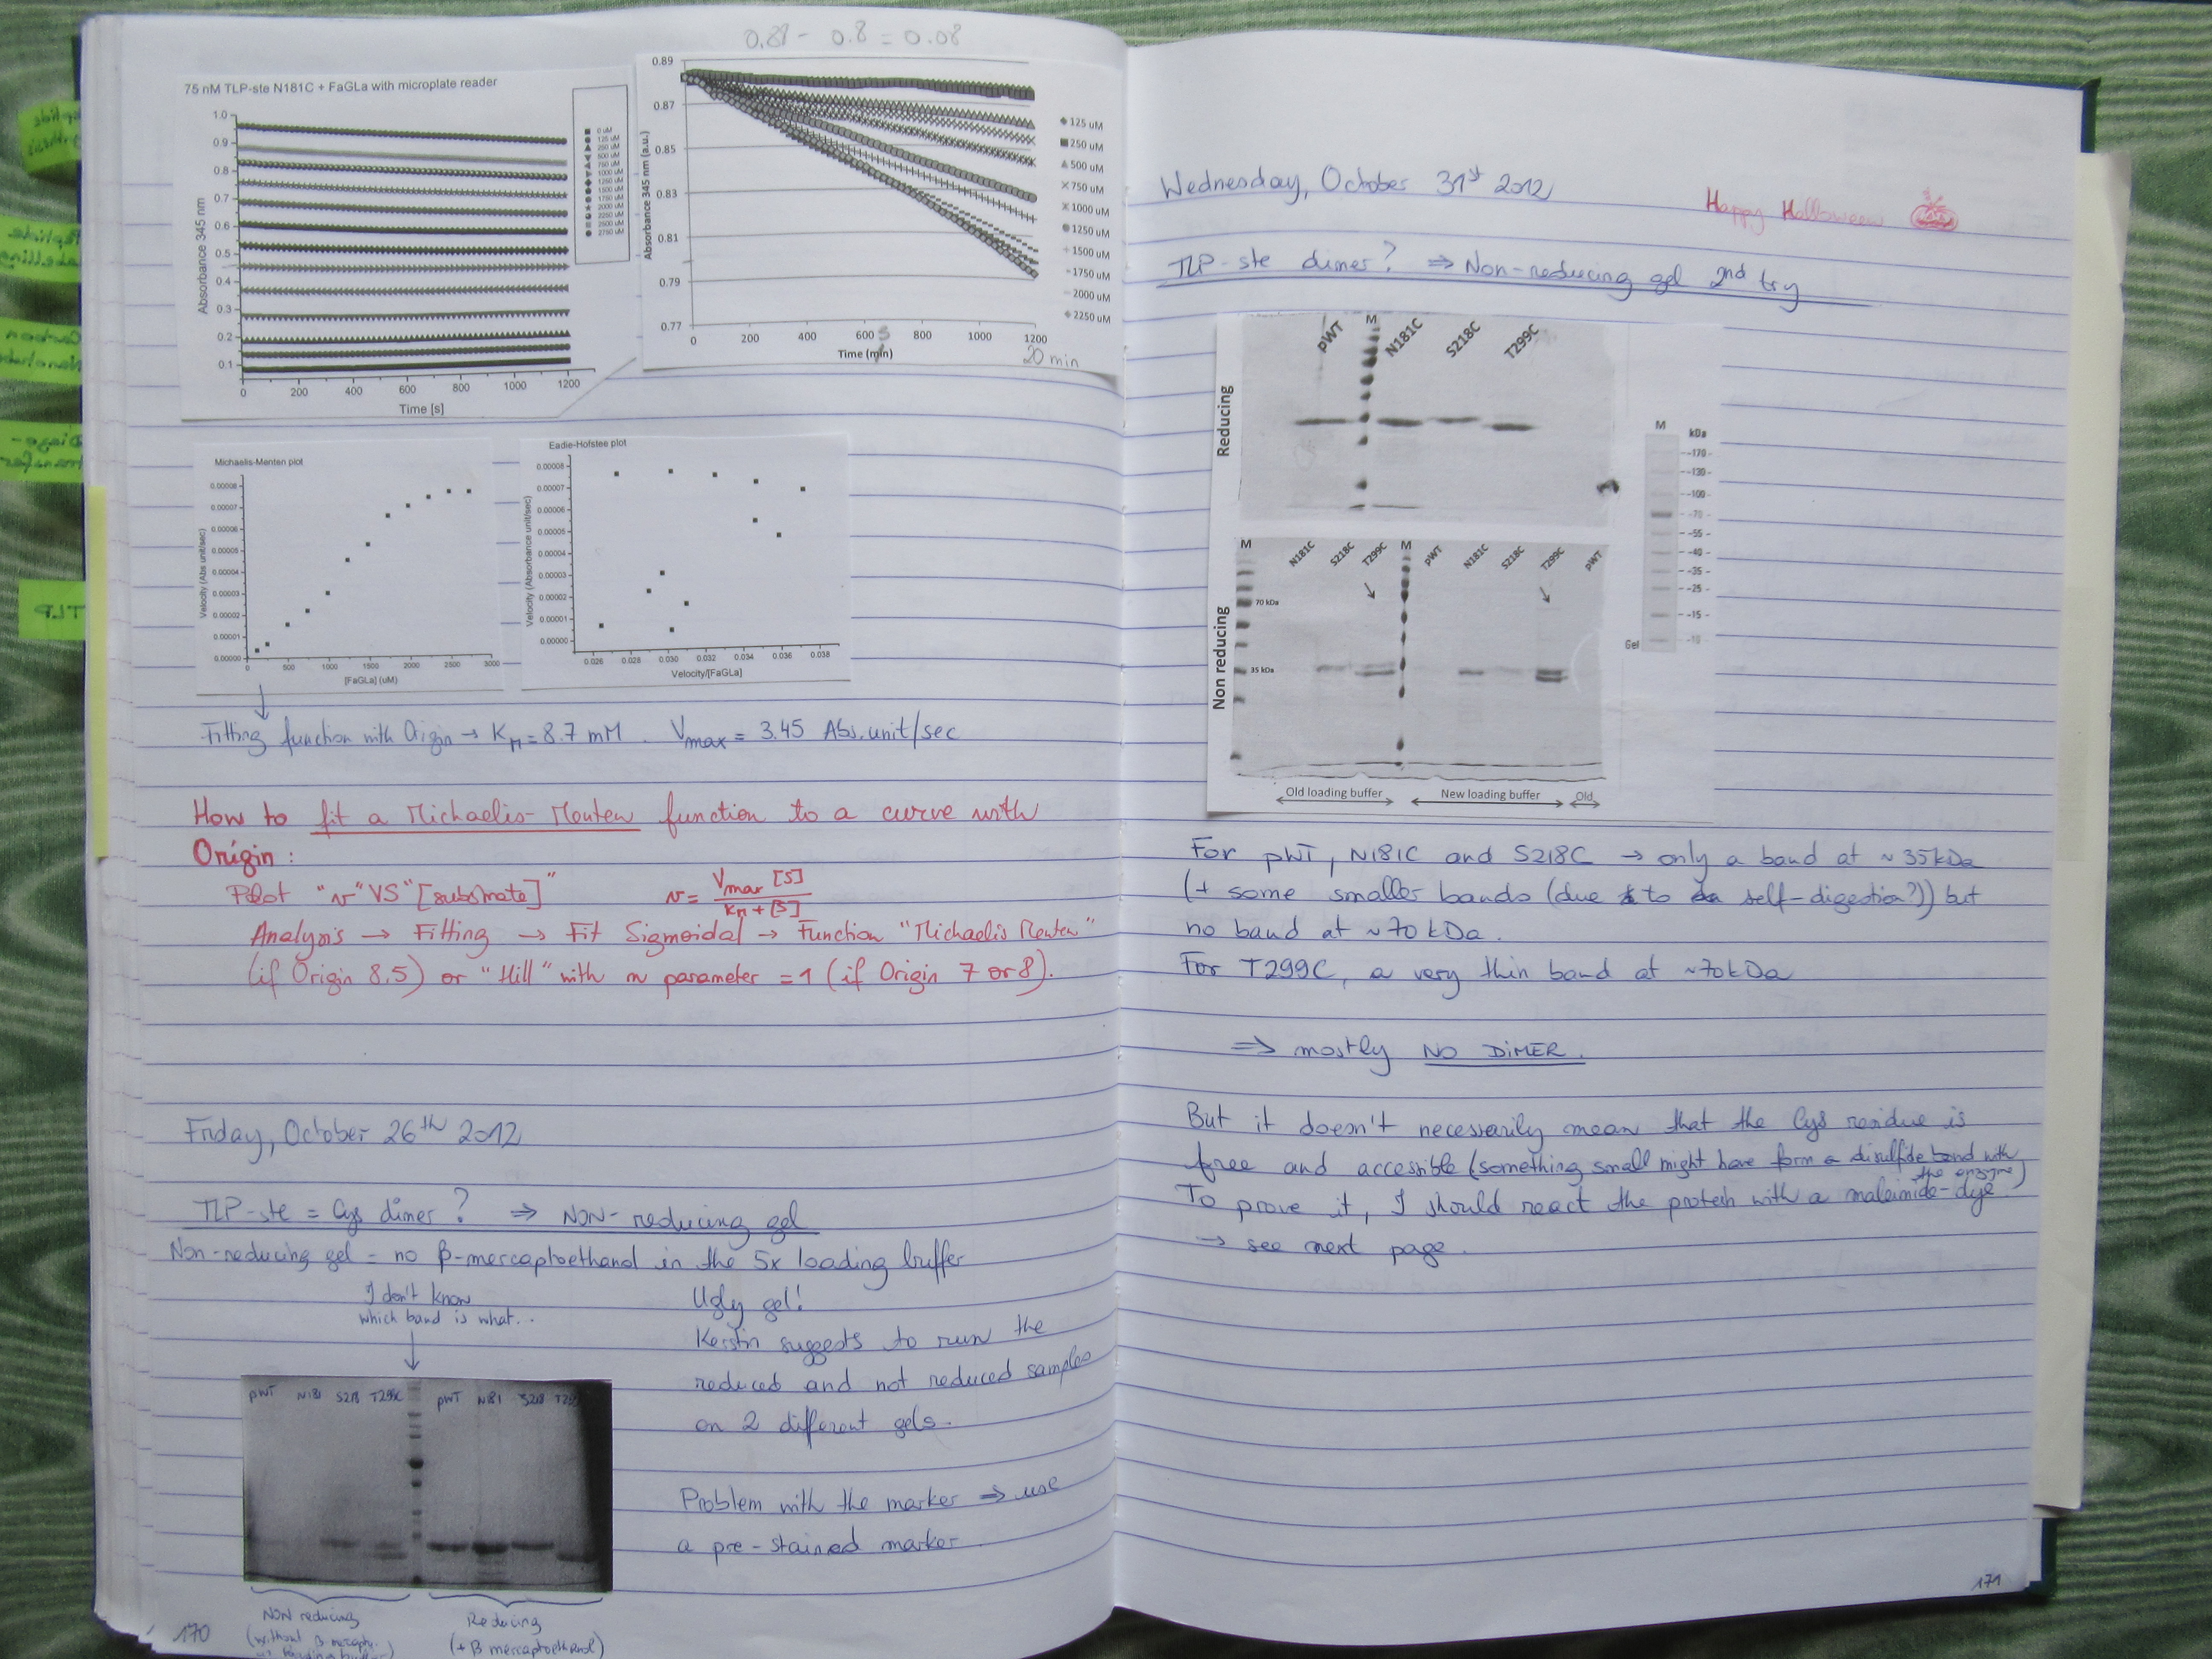 0.88 - 0.8 = 0.08
75 nM TLP-ste N181C + FaGLa with microplate reader
Absorbance 345 nm
1.0
0.9
0.8
0.7
0.6
0.5
0.4
0.3
0.2
0.1
0 200 400 600 800 1000 1200
Time [s]
0 uM
125 uM
250 uM
500 uM
750 uM
1000 uM
1250 uM
1500 uM
1750 uM
2000 uM
2250 uM
2500 uM
2750 uM
Absorbance 345 nm (a.u.)
0.89
0.87
0.85
0.83
0.81
0.79
0.77
0 200 400 600 800 1000 1200
Time (min)
s
20 min
125 uM
250 uM
500 uM
750 uM
1000 uM
1250 uM
1500 uM
1750 uM
2000 uM
2250 uM
Michaelis-Menten plot
Velocity (Abs unit/sec)
0.00008
0.00007
0.00006
0.00005
0.00004
0.00003
0.00002
0.00001
0.00000
0 500 1000 1500 2000 2500 3000
[FaGLa] (uM)
Eadie-Hofstee plot
Velocity (Absorbance unit/sec)
0.00008
0.00007
0.00006
0.00005
0.00004
0.00003
0.00002
0.00001
0.00000
0.026 0.028 0.030 0.032 0.034 0.036 0.038
Velocity/[FaGLa]
Fitting function with Origin → KM = 8.7 mM. Vmax = 3.45 Abs.unit/sec
How to fit a Michaelis-Menten function to a curve with
Origin:
Plot "v" VS "[substrate]" v = Vmax [S] / KM + [S]
Analysis → Fitting → Fit Sigmoidal → Function "Michaelis Menten"
(if Origin 8.5) or "Hill" with n parameter = 1 (if Origin 7 or 8).
Friday, October 26th 2012
TLP-ste = Cys dimer? ⇒ NON-reducing gel
Non-reducing gel = no β-mercaptoethanol in the 5x loading buffer
I don't know
which band is what...
Ugly gel!
Kerstin suggests to run the
reduced and not reduced samples
on 2 different gels.
Problem with the marker ⇒ use
a pre-stained marker.
pWT N181 S218 T299C pWT N181 S218
NON reducing
(without β mercapto.
Reducing
(+ β mercaptoethanol)
170
Peptide
Labelling
Carbon
Diazo-
transfer
TLP
Wednesday, October 31st 2012
Happy Halloween
TLP-ste dimer? ⇒ Non-reducing gel 2nd try
Reducing
pWT M N181C S218C T299C
Non reducing
M N181C S218C T299C M pWT N181C S218C T299C pWT
70 kDa
35 kDa
M kDa
170
130
100
70
55
40
35
25
15
Gel
Old loading buffer New loading buffer Old
For pWT, N181C and S218C → only a band at ~35kDa
(+ some smaller bands (due to self-digestion?)) but
no band at ~70 kDa.
For T299C, a very thin band at ~70kDa
⇒ mostly NO DIMER.
But it doesn't necessarily mean that the Cys residue is
free and accessible (something small might have form a disulfide bond with
the enzyme)
To prove it, I should react the protein with a maleimide-dye.
→ see next page.
171